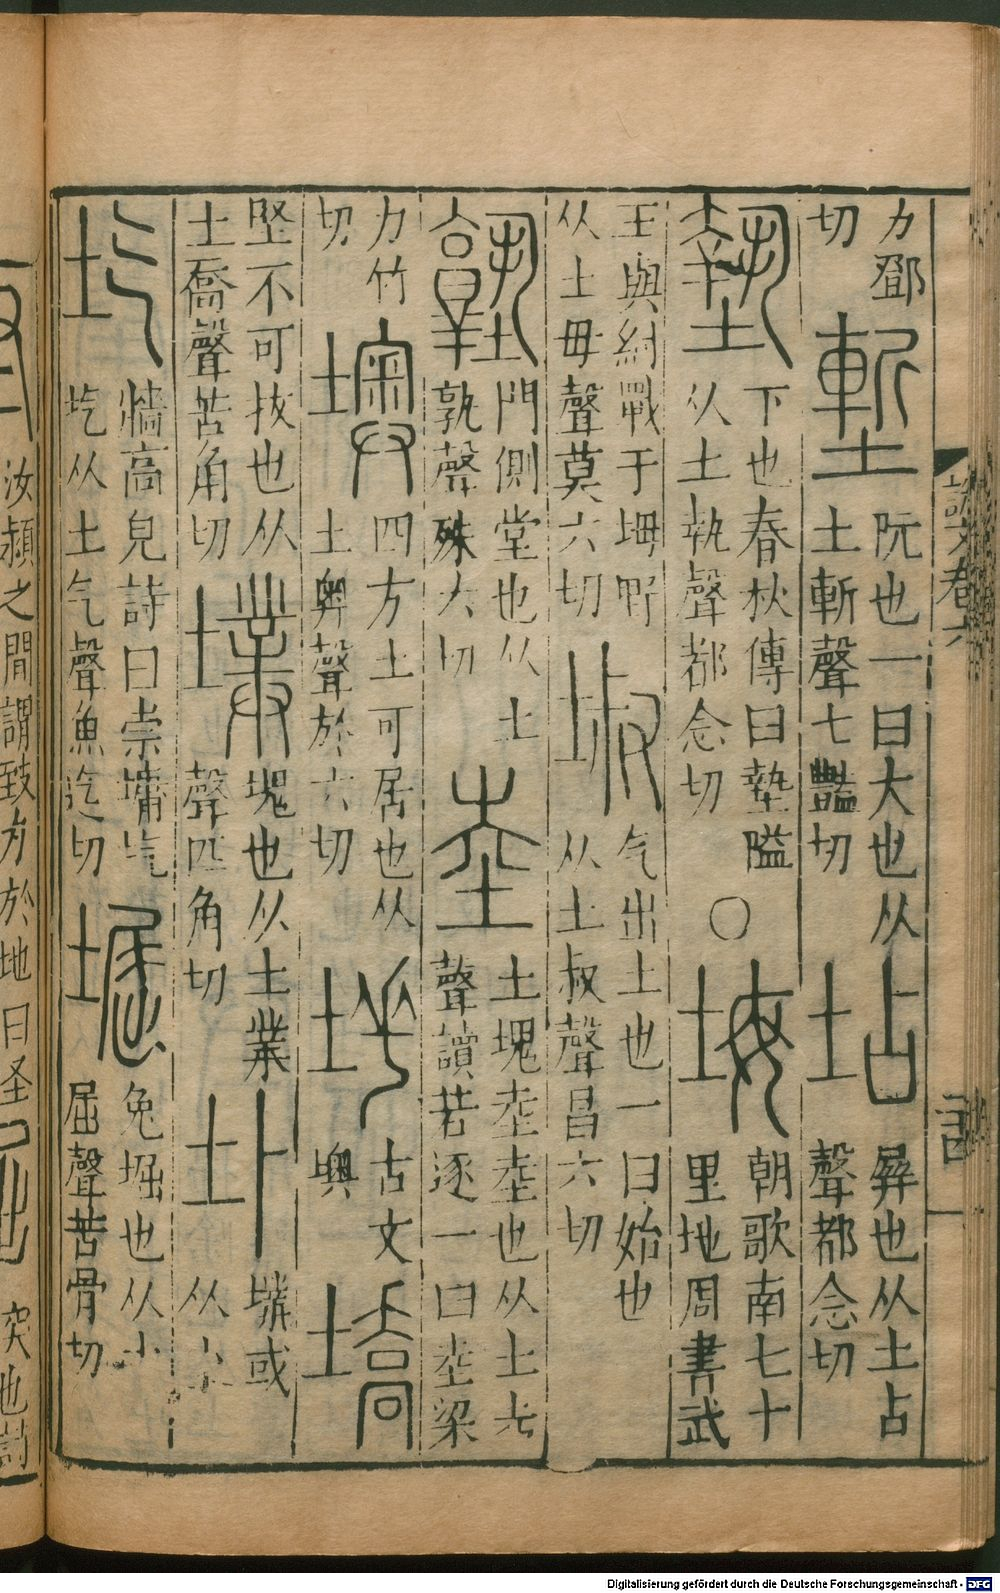 力鄧
切
塹
阮也一曰大也从
土斬聲七豔切
坫
屏也从土占
聲都念切
墊
下也春秋傳曰墊隘
从土執聲都念切
○
坶
朝歌南七十
里地周書武
王與紂戰于坶野
从土母聲莫六切
埱
气出土也一曰始也
从土叔聲昌六切
塾
門側堂也从土
孰聲殊六切
坴
土塊坴坴也从土圥
聲讀若逐一曰坴梁
力竹
切
墺
四方土可居也从
土奧聲於六切
古文
墺
塙
堅不可拔也从
土喬聲苦角切
墣
塊也从土業
聲匹角切
圤
墣或
从卜
圪
牆高皃詩曰崇墉圪
圪从土气聲魚迄切
堀
兔堀也从土
屈聲苦骨切
說文卷六
汝潁之間謂致力於地曰圣
突也詩
Digitalisierung gefördert durch die Deutsche Forschungsgemeinschaft - DFG